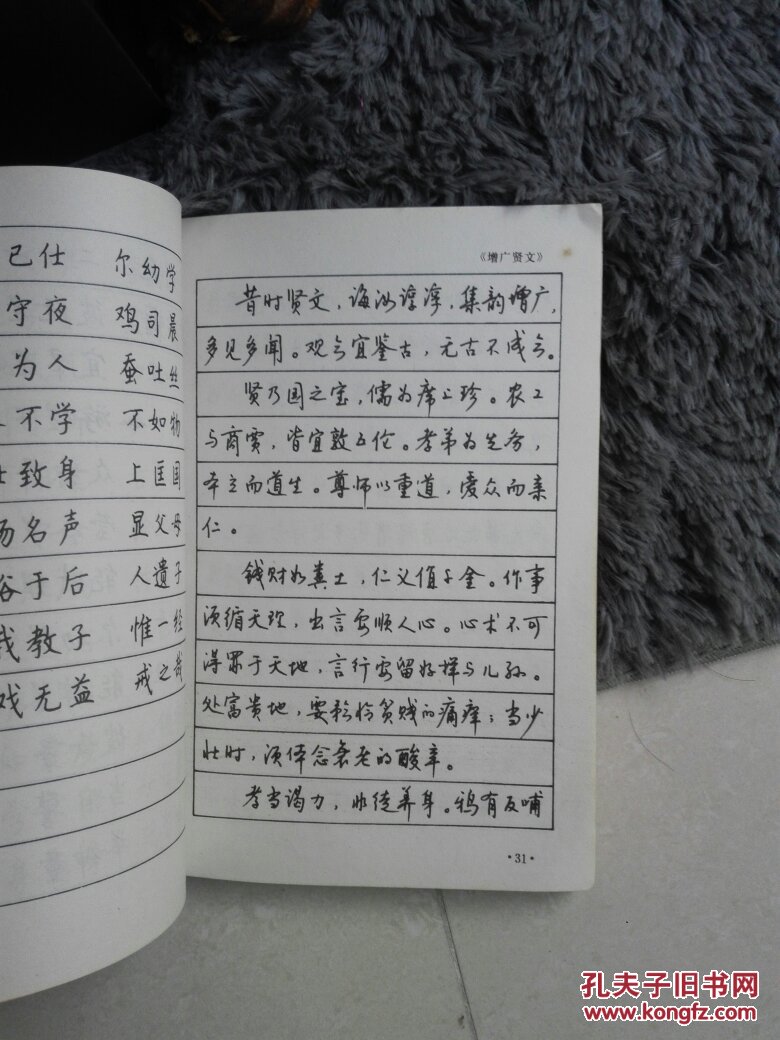 已仕 尔幼学
守夜 鸡司晨
为人 蚕吐丝
不学 不如物
致身 上匡国
扬名声 显父母
裕于后 人遗子
我教子 惟一经
戏无益 戒之哉
《增广贤文》
昔时贤文，诲汝谆谆，集韵增广，
多见多闻。观今宜鉴古，无古不成今。
贤乃国之宝，儒为席上珍。农工
与商贾，皆宜敦五伦。孝弟为先务，
本立而道生。尊师以重道，爱众而亲
仁。
钱财如粪土，仁义值千金。作事
须循天理，出言要顺人心。心术不可
得罪于天地，言行要留好样与儿孙。
处富贵地，要矜怜贫贱的痛痒；当少
壮时，须体念衰老的酸辛。
孝当竭力，非徒养身。鸦有反哺
·31·
孔夫子旧书网
www.kongfz.com